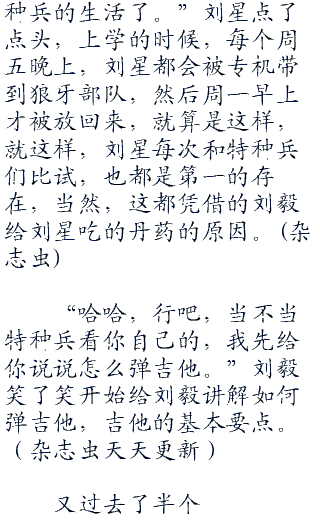 种兵的生活了。”刘星点了
点头，上学的时候，每个周
五晚上，刘星都会被专机带
到狼牙部队，然后周一早上
才被放回来，就算是这样，
就这样，刘星每次和特种兵
们比试，也都是第一的存
在，当然，这都凭借的刘毅
给刘星吃的丹药的原因。(杂
志虫)
“哈哈，行吧，当不当
特种兵看你自己的，我先给
你说说怎么弹吉他。”刘毅
笑了笑开始给刘毅讲解如何
弹吉他，吉他的基本要点。
（杂志虫天天更新）
又过去了半个